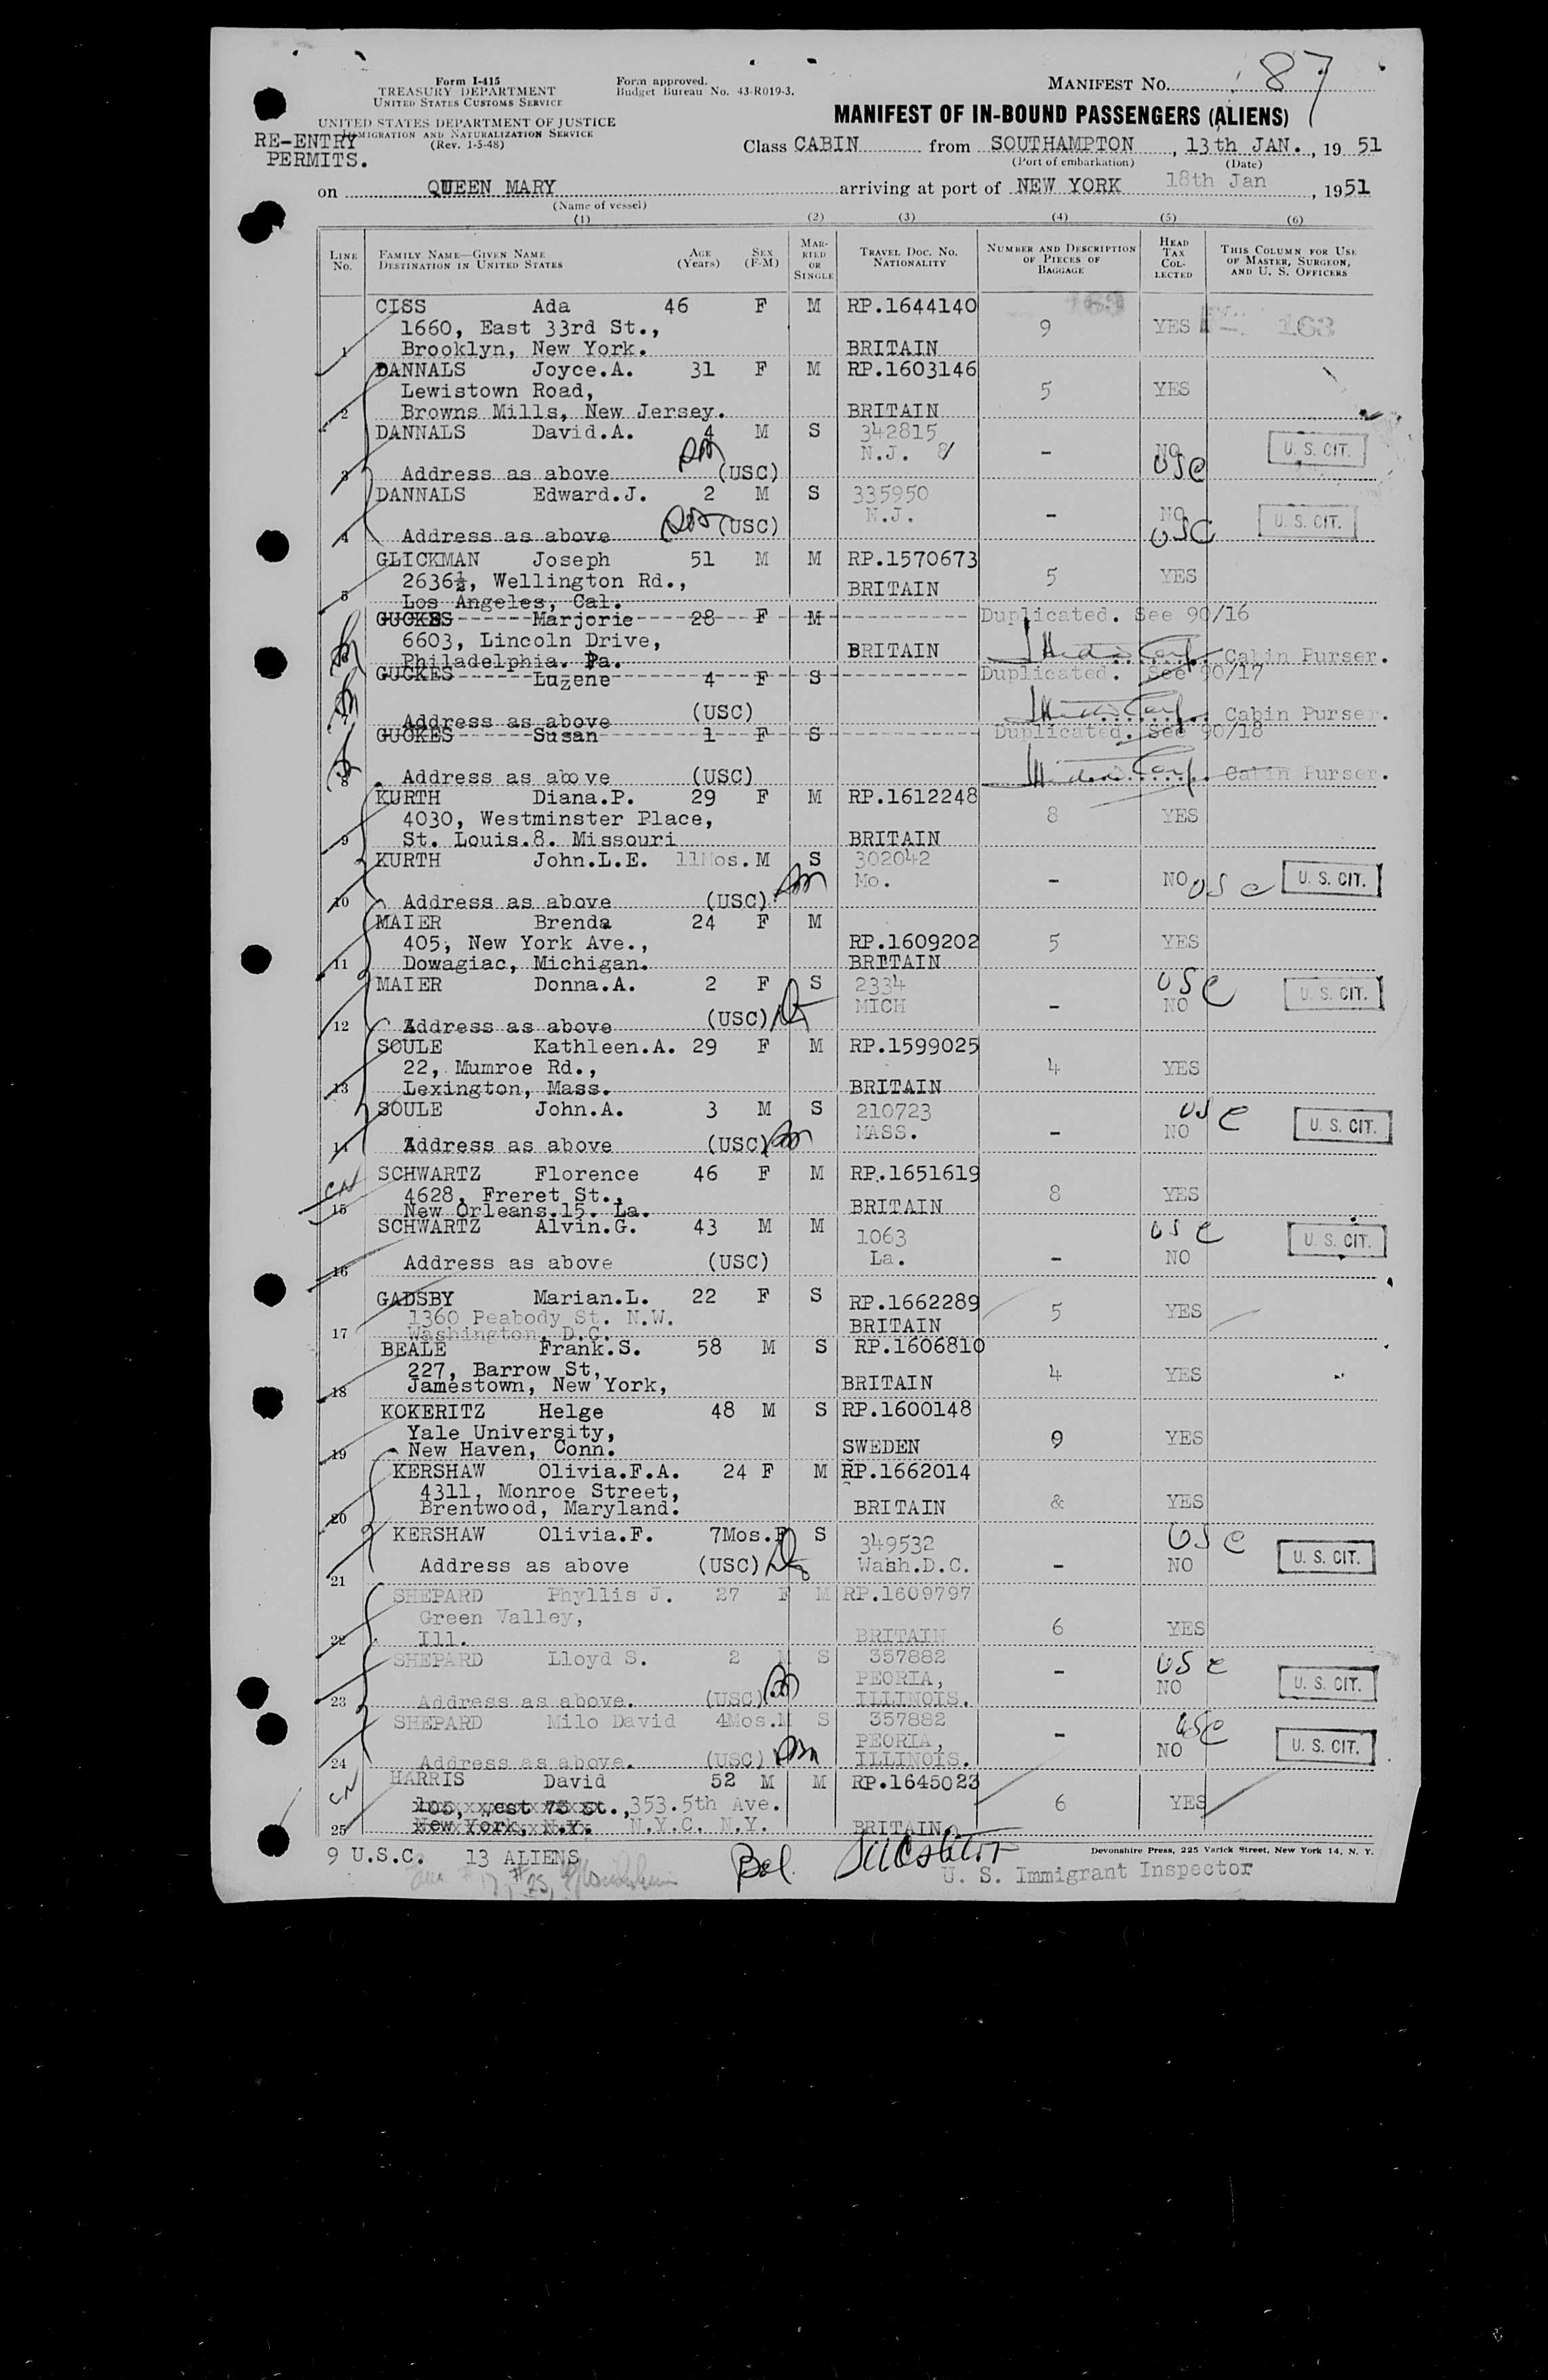 Form I-415
TREASURY DEPARTMENT
UNITED STATES CUSTOMS SERVICE
Form approved.
Budget Bureau No. 43-R019-3.
MANIFEST NO. 87
UNITED STATES DEPARTMENT OF JUSTICE
IMMIGRATION AND NATURALIZATION SERVICE
(Rev. 1-5-48)
RE-ENTRY
PERMITS.
MANIFEST OF IN-BOUND PASSENGERS (ALIENS)
Class CABIN from SOUTHAMPTON, 13th JAN., 19 51
(Port of embarkation) (Date)
on QUEEN MARY arriving at port of NEW YORK 18th Jan, 1951
(Name of vessel)
(1) (2) (3) (4) (5) (6)
LINE No. FAMILY NAME—GIVEN NAME DESTINATION IN UNITED STATES AGE (Years) SEX (F-M) MARRIED OR SINGLE TRAVEL DOC. NO. NATIONALITY NUMBER AND DESCRIPTION OF PIECES OF BAGGAGE HEAD TAX COLLECTED THIS COLUMN FOR USE OF MASTER, SURGEON, AND U. S. OFFICERS
CISS Ada 46 F M RP.1644140
1660, East 33rd St., 9 YES 163
1 Brooklyn, New York. BRITAIN
DANNALS Joyce.A. 31 F M RP.1603146
Lewistown Road, 5 YES
2 Browns Mills, New Jersey. BRITAIN
DANNALS David.A. 4 M S 342815
N.J. - NO U. S. CIT.
3 Address as above (USC) USC
DANNALS Edward.J. 2 M S 335950
N.J. - NO U. S. CIT.
4 Address as above (USC) USC
GLICKMAN Joseph 51 M M RP.1570673
2636½, Wellington Rd., BRITAIN 5 YES
5 Los Angeles, Cal.
GUCKES Marjorie 28 F M Duplicated. See 90/16
6603, Lincoln Drive, BRITAIN
6 Philadelphia. Pa. Cabin Purser.
GUCKES Luzene 4 F S Duplicated. See 90/17
(USC)
7 Address as above Cabin Purser.
GUCKES Susan 1 F S Duplicated. See 90/18
8 Address as above (USC) Cabin Purser.
KURTH Diana.P. 29 F M RP.1612248
4030, Westminster Place, 8 YES
9 St. Louis.8. Missouri BRITAIN
KURTH John.L.E. 11Mos. M S 302042
Mo. - NO USC U. S. CIT.
10 Address as above (USC)
MAIER Brenda 24 F M
405, New York Ave., RP.1609202 5 YES
11 Dowagiac, Michigan. BRITAIN
MAIER Donna.A. 2 F S 2334 USC
MICH - NO U. S. CIT.
12 Address as above (USC)
SOULE Kathleen.A. 29 F M RP.1599025
22, Munroe Rd., 4 YES
13 Lexington, Mass. BRITAIN
SOULE John.A. 3 M S 210723 USC
MASS. - NO U. S. CIT.
14 Address as above (USC)
SCHWARTZ Florence 46 F M RP.1651619
CN 4628, Freret St., 8 YES
15 New Orleans.15. La. BRITAIN
SCHWARTZ Alvin.G. 43 M M 1063 USC U. S. CIT.
16 Address as above (USC) La. - NO
GADSBY Marian.L. 22 F S RP.1662289
1360 Peabody St. N.W. 5 YES
17 Washington. D.C. BRITAIN
BEALE Frank.S. 58 M S RP.1606810
227, Barrow St, 4 YES
18 Jamestown, New York, BRITAIN
KOKERITZ Helge 48 M S RP.1600148
Yale University, 9 YES
19 New Haven, Conn. SWEDEN
KERSHAW Olivia.F.A. 24 F M RP.1662014
4311, Monroe Street, & YES
20 Brentwood, Maryland. BRITAIN
KERSHAW Olivia.F. 7Mos.F S 349532 USC
21 Address as above (USC) Wash.D.C. - NO U. S. CIT.
SHEPARD Phyllis J. 27 F M RP.1609797
Green Valley, 6 YES
22 Ill. BRITAIN
SHEPARD Lloyd S. 2 M S 357882 USC
PEORIA, - NO U. S. CIT.
23 Address as above. (USC) ILLINOIS.
SHEPARD Milo David 4Mos.M S 357882 USC
PEORIA, - NO U. S. CIT.
24 Address as above. (USC) ILLINOIS.
HARRIS David 52 M M RP.1645023
CN 105, West 75 St., 353.5th Ave. 6 YES
25 New York, N.Y. N.Y.C. N.Y. BRITAIN
9 U.S.C. 13 ALIENS
Devonshire Press, 225 Varick Street, New York 14, N. Y.
U. S. Immigrant Inspector